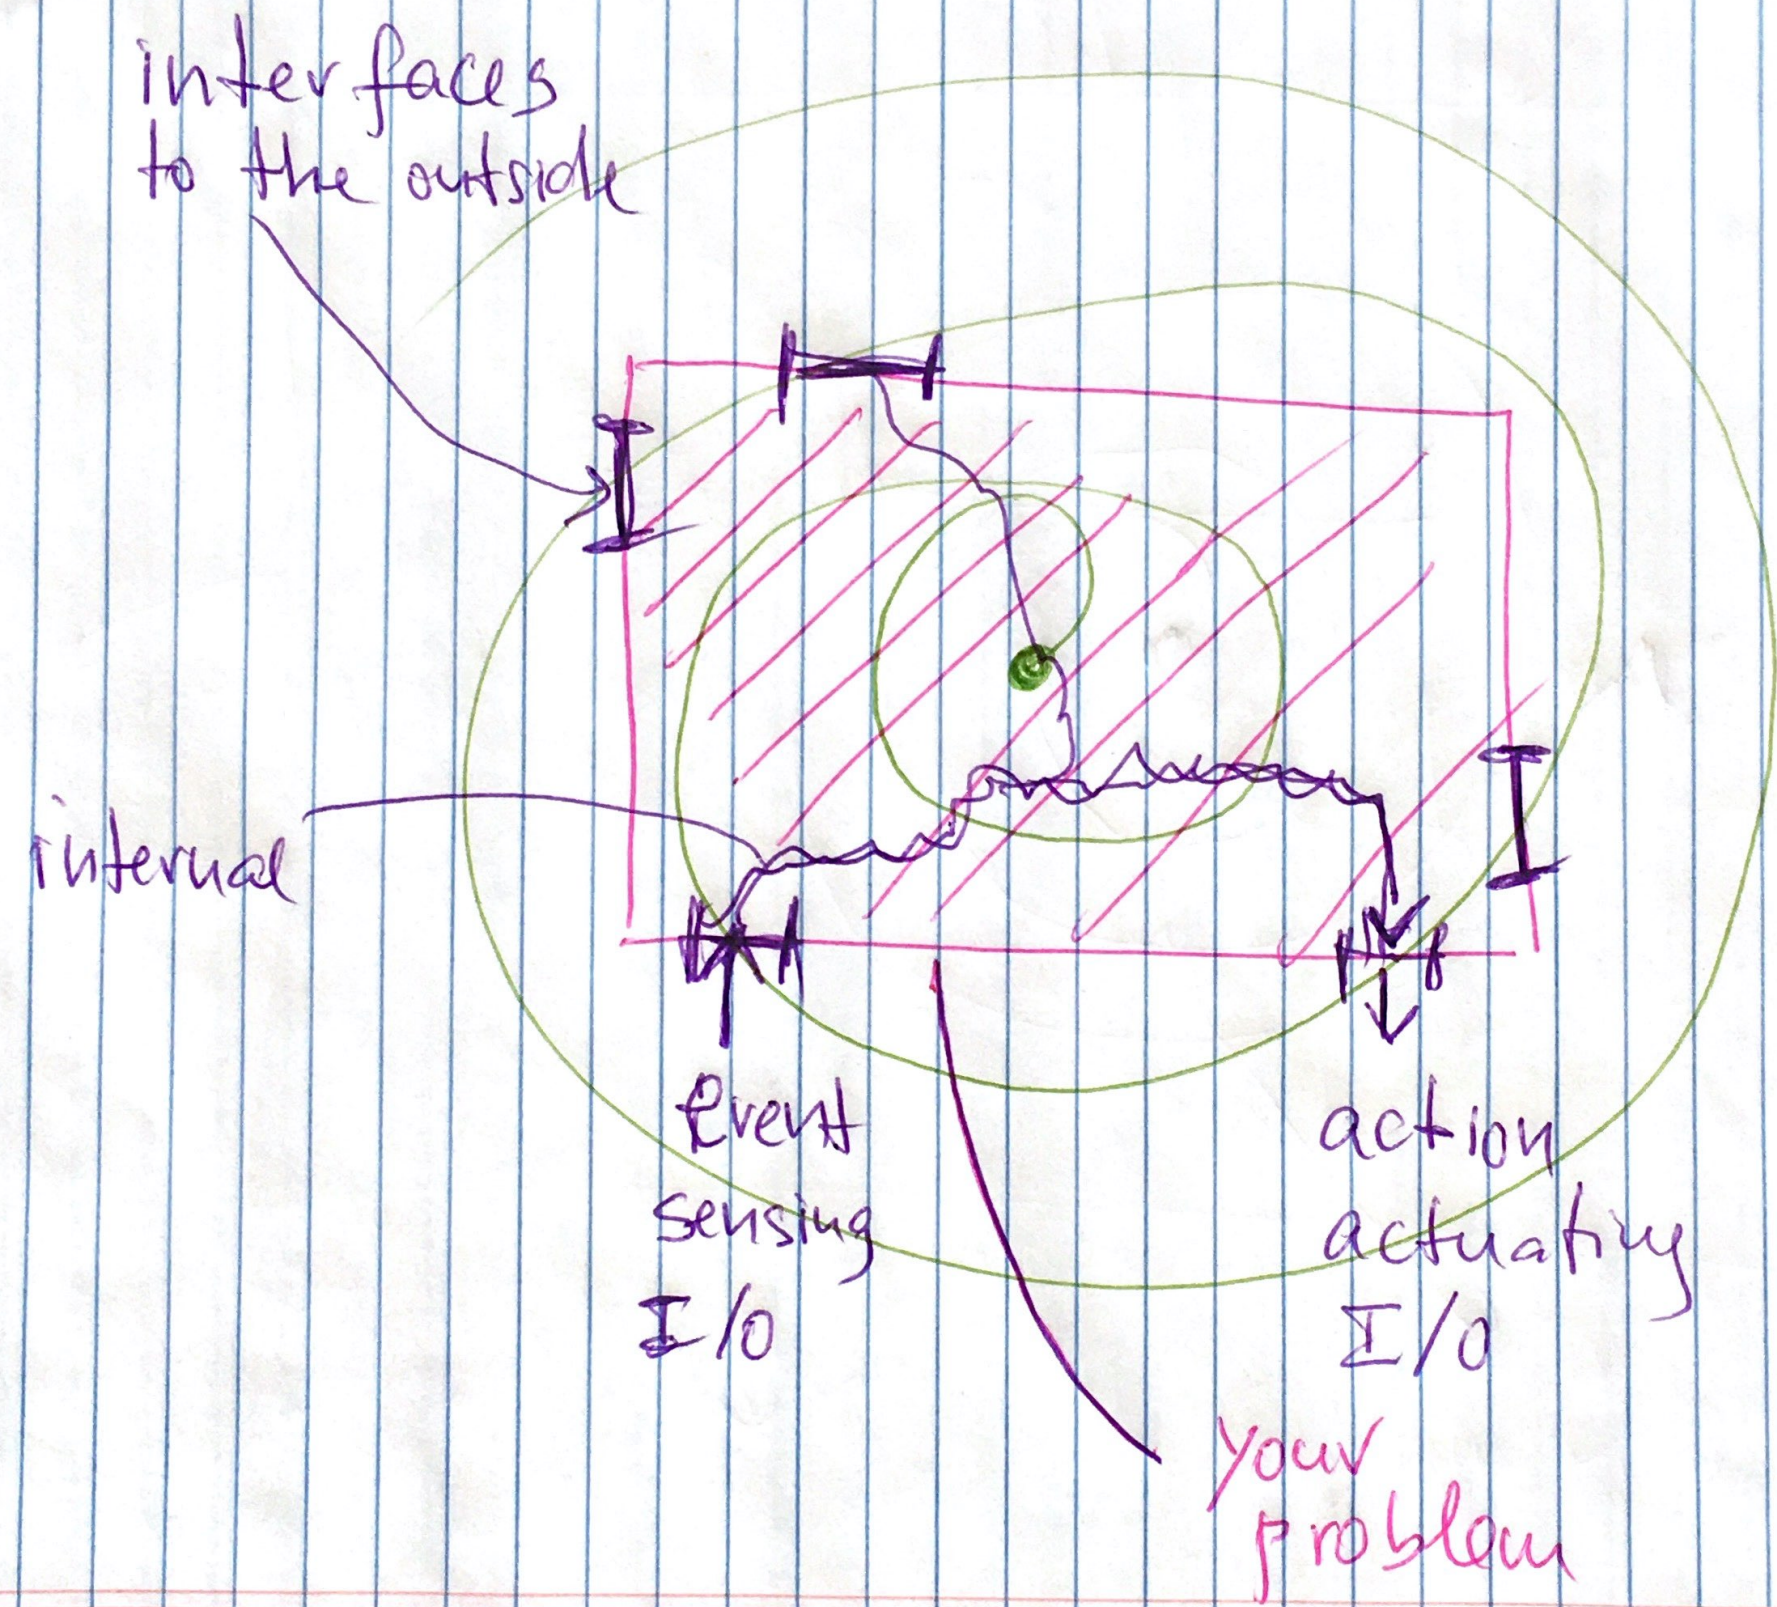 interfaces
to the outside
internal
Event
sensing
I/O
action
actuating
I/O
your
problem